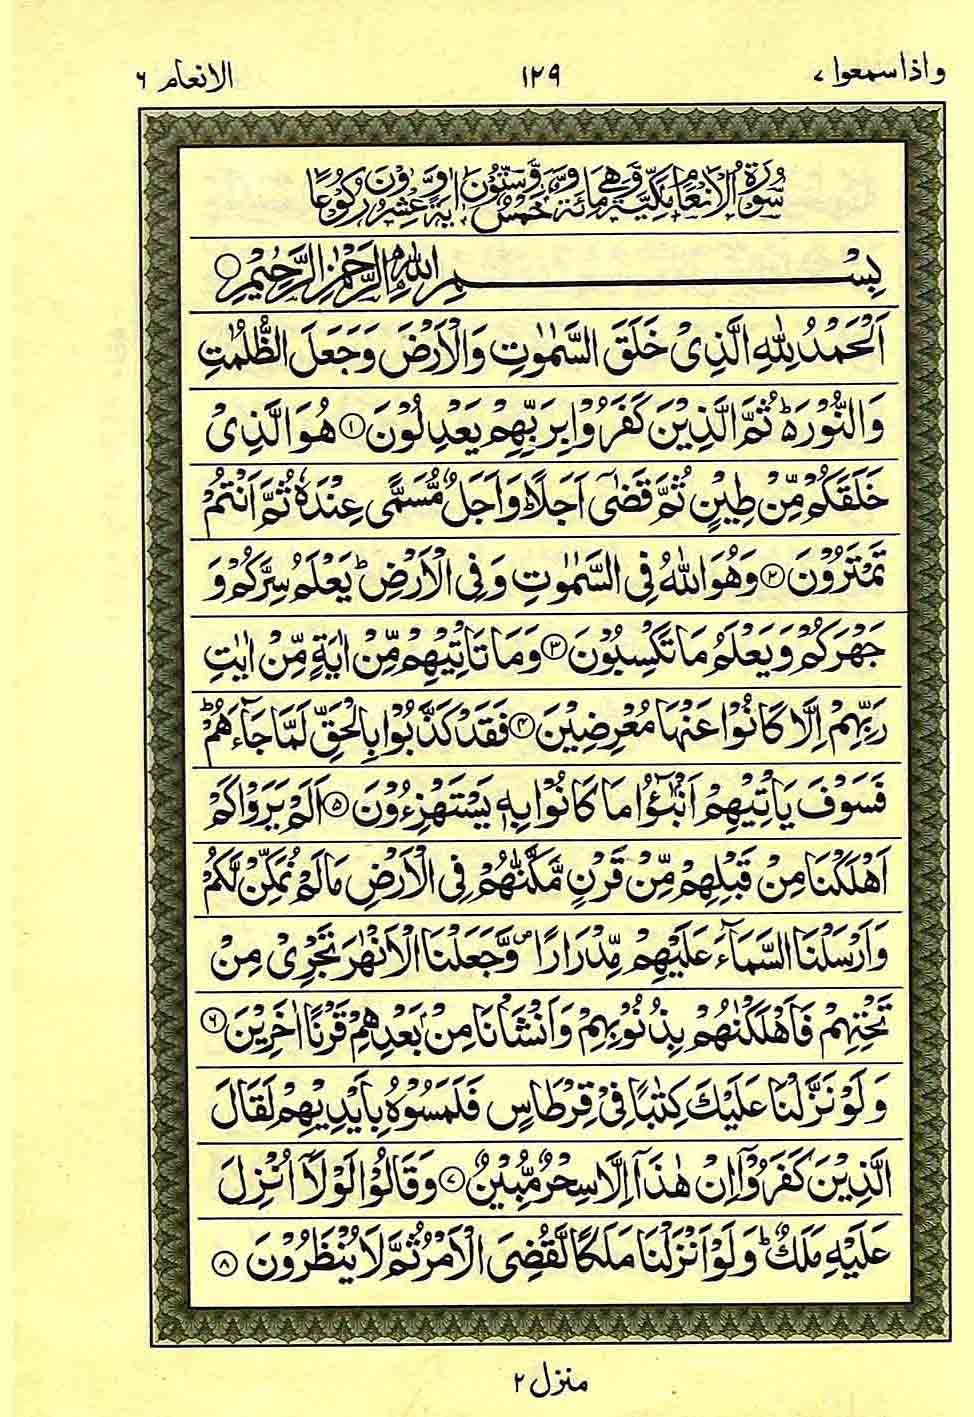 واذاسمعوا ۷
۱۲۹
الانعام ٦
سُوْرَةُ الْاَنْعَامِ مَكِّيَّةٌ وَّهِيَ مِائَةٌ وَّخَمْسٌ وَّسِتُّوْنَ اٰيَةً وَّعِشْرُوْنَ رُكُوْعًا
بِسْمِ اللّٰهِ الرَّحْمٰنِ الرَّحِيْمِ ○
اَلْحَمْدُ لِلّٰهِ الَّذِىْ خَلَقَ السَّمٰوٰتِ وَالْاَرْضَ وَجَعَلَ الظُّلُمٰتِ
وَالنُّوْرَ ؕ۬ ثُمَّ الَّذِيْنَ كَفَرُوْا بِرَبِّهِمْ يَعْدِلُوْنَ ۝۱ هُوَ الَّذِىْ
خَلَقَكُمْ مِّنْ طِيْنٍ ثُمَّ قَضٰۤى اَجَلًا ؕ وَاَجَلٌ مُّسَمًّى عِنْدَهٗ ثُمَّ اَنْتُمْ
تَمْتَرُوْنَ ۝۲ وَهُوَ اللّٰهُ فِى السَّمٰوٰتِ وَفِى الْاَرْضِ ؕ يَعْلَمُ سِرَّكُمْ وَ
جَهْرَكُمْ وَيَعْلَمُ مَا تَكْسِبُوْنَ ۝۳ وَمَا تَاْتِيْهِمْ مِّنْ اٰيَةٍ مِّنْ اٰيٰتِ
رَبِّهِمْ اِلَّا كَانُوْا عَنْهَا مُعْرِضِيْنَ ۝۴ فَقَدْ كَذَّبُوْا بِالْحَقِّ لَمَّا جَآءَهُمْ ؕ
فَسَوْفَ يَاْتِيْهِمْ اَنْۢبٰٓؤُا مَا كَانُوْا بِهٖ يَسْتَهْزِءُوْنَ ۝۵ اَلَمْ يَرَوْا كَمْ
اَهْلَكْنَا مِنْ قَبْلِهِمْ مِّنْ قَرْنٍ مَّكَّنّٰهُمْ فِى الْاَرْضِ مَا لَمْ نُمَكِّنْ لَّكُمْ
وَاَرْسَلْنَا السَّمَآءَ عَلَيْهِمْ مِّدْرَارًا ۪ وَّجَعَلْنَا الْاَنْهٰرَ تَجْرِىْ مِنْ
تَحْتِهِمْ فَاَهْلَكْنٰهُمْ بِذُنُوْبِهِمْ وَاَنْشَاْنَا مِنْۢ بَعْدِهِمْ قَرْنًا اٰخَرِيْنَ ۝۶
وَلَوْ نَزَّلْنَا عَلَيْكَ كِتٰبًا فِىْ قِرْطَاسٍ فَلَمَسُوْهُ بِاَيْدِيْهِمْ لَقَالَ
الَّذِيْنَ كَفَرُوْۤا اِنْ هٰذَاۤ اِلَّا سِحْرٌ مُّبِيْنٌ ۝۷ وَقَالُوْا لَوْلَاۤ اُنْزِلَ
عَلَيْهِ مَلَكٌ ؕ وَلَوْ اَنْزَلْنَا مَلَكًا لَّقُضِىَ الْاَمْرُ ثُمَّ لَا يُنْظَرُوْنَ ۝۸
منزل ۲